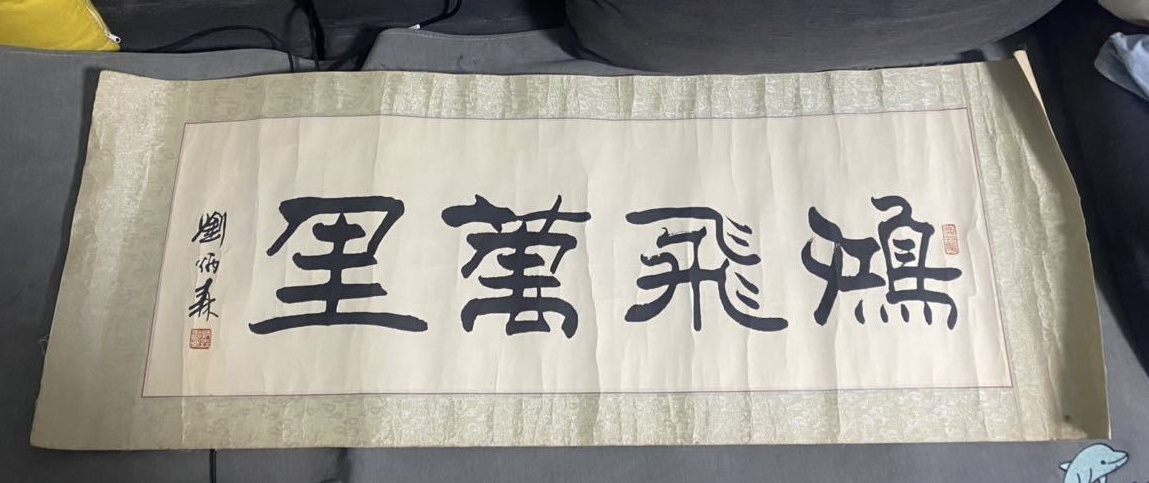 鴻飛萬里
劉炳森